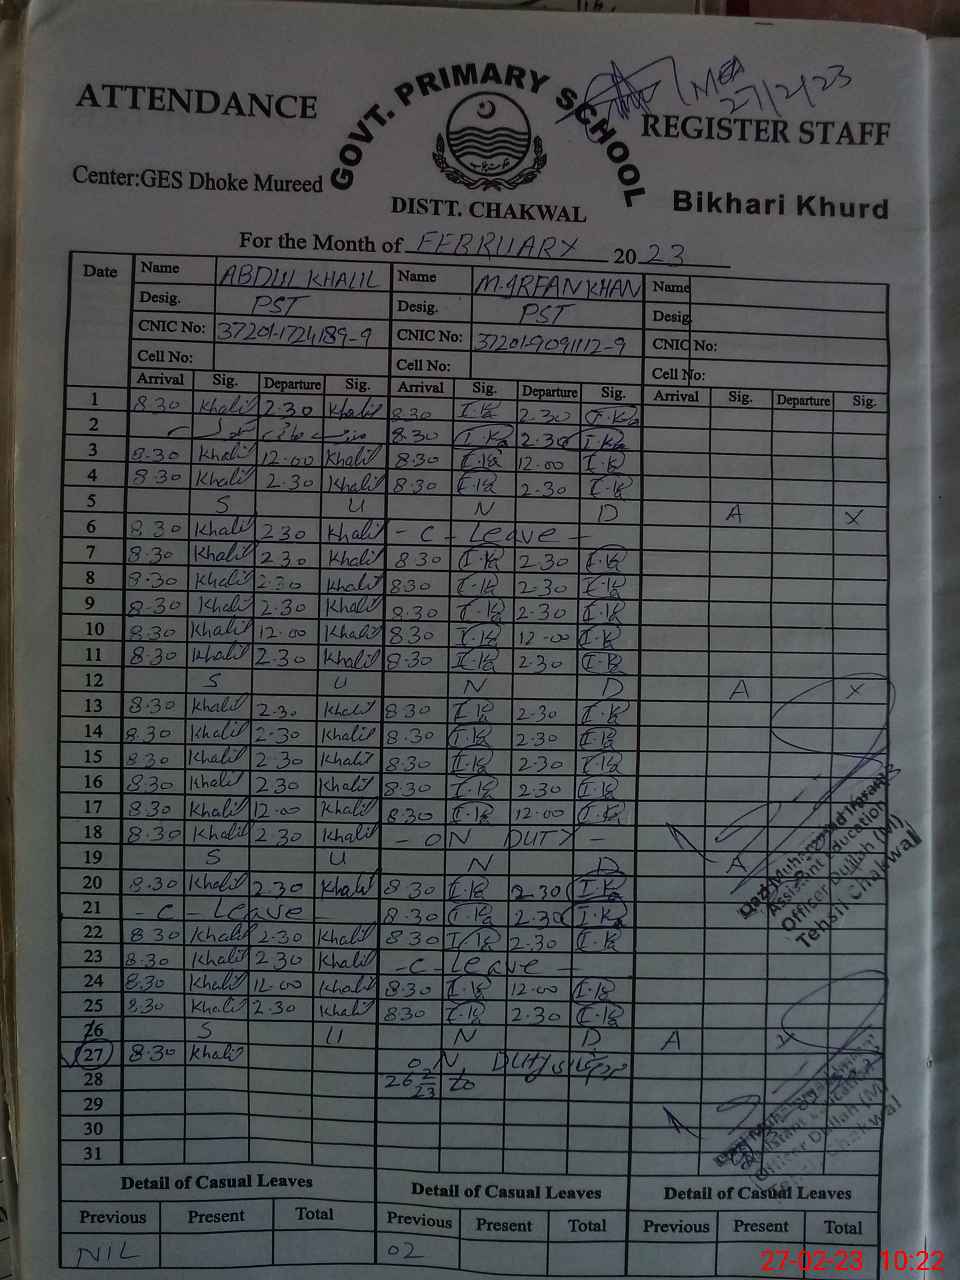 MEA
27/2/23
ATTENDANCE
GOVT. PRIMARY SCHOOL
REGISTER STAFF
Center:GES Dhoke Mureed
DISTT. CHAKWAL
Bikhari Khurd
For the Month of FEBRUARY 2023
Date Name ABDUL KHALIL Name M.IRFAN KHAN Name
Desig. PST Desig. PST Desig.
CNIC No: 37201-1724189-9 CNIC No: 37201-9091112-9 CNIC No:
Cell No: Cell No: Cell No:
Arrival Sig. Departure Sig. Arrival Sig. Departure Sig. Arrival Sig. Departure Sig.
1 8.30 Khalil 2.30 Khalil 8.30 I.K 2.30 I.K
2 8.30 I.K 2.30 I.K
3 8.30 Khalil 12.00 Khalil 8.30 I.K 12.00 I.K
4 8.30 Khalil 2.30 Khalil 8.30 I.K 2.30 I.K
5 S U N D A X
6 8.30 Khalil 2.30 Khalil - C - Leave -
7 8.30 Khalil 2.30 Khalil 8.30 I.K 2.30 I.K
8 8.30 Khalil 2.30 Khalil 8.30 I.K 2.30 I.K
9 8.30 Khalil 2.30 Khalil 8.30 I.K 2.30 I.K
10 8.30 Khalil 12.00 Khalil 8.30 I.K 12.00 I.K
11 8.30 Khalil 2.30 Khalil 8.30 I.K 2.30 I.K
12 S U N D A X
13 8.30 Khalil 2.30 Khalil 8.30 I.K 2.30 I.K
14 8.30 Khalil 2.30 Khalil 8.30 I.K 2.30 I.K
15 8.30 Khalil 2.30 Khalil 8.30 I.K 2.30 I.K
16 8.30 Khalil 2.30 Khalil 8.30 I.K 2.30 I.K
17 8.30 Khalil 12.00 Khalil 8.30 I.K 12.00 I.K
18 8.30 Khalil 2.30 Khalil - ON DUTY -
19 S U N D A
20 8.30 Khalil 2.30 Khalil 8.30 I.K 2.30 I.K
21 - C - Leave - 8.30 I.K 2.30 I.K
22 8.30 Khalil 2.30 Khalil 8.30 I.K 2.30 I.K
23 8.30 Khalil 2.30 Khalil - C - Leave -
24 8.30 Khalil 12.00 Khalil 8.30 I.K 12.00 I.K
25 8.30 Khalil 2.30 Khalil 8.30 I.K 2.30 I.K
26 S U N D A
27 8.30 Khalil ON DUTY
28 26 2/23 to
29
30
31
Assistant Education
Officer Dullah (M)
Tehsil Chakwal
Assistant Education
Officer Dullah (M)
Tehsil Chakwal
Detail of Casual Leaves Detail of Casual Leaves Detail of Casual Leaves
Previous Present Total Previous Present Total Previous Present Total
NIL 02
27-02-23 10:22